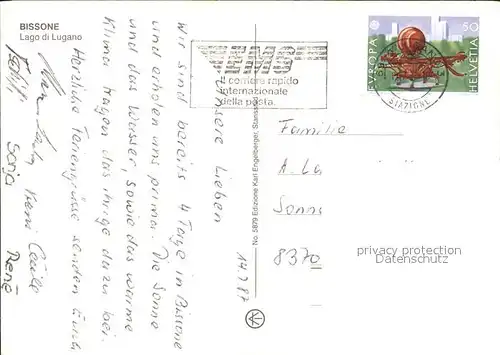 BISSONE
Lago di Lugano
14.7.87
Unsere Lieben
Wir sind bereits 4 Tage in Bissone
und erholen uns prima. Die Sonne
und das Wasser, sowie das warme
Klima tragen das ihrige dazu bei.
Herzliche Feriengrüsse senden Euch
René
Sonja
EMS
il corriere rapido
internazionale
della posta.
EUROPA
HELVETIA
50
STAZIONE
No. 5879 Edizione Karl Engelberger, Stansstad
Familie
A. La
Sonn
8370
privacy protection
Datenschutz